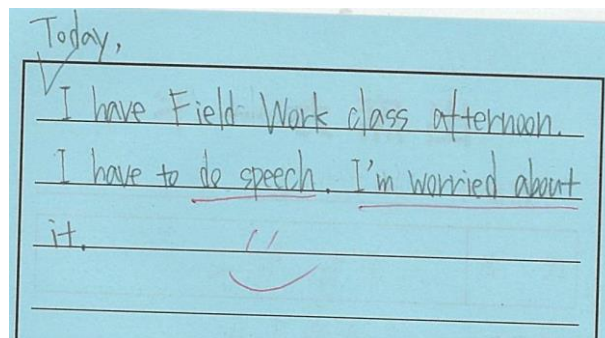 Today,
I have Field Work class afternoon.
I have to do speech. I'm worried about
it.